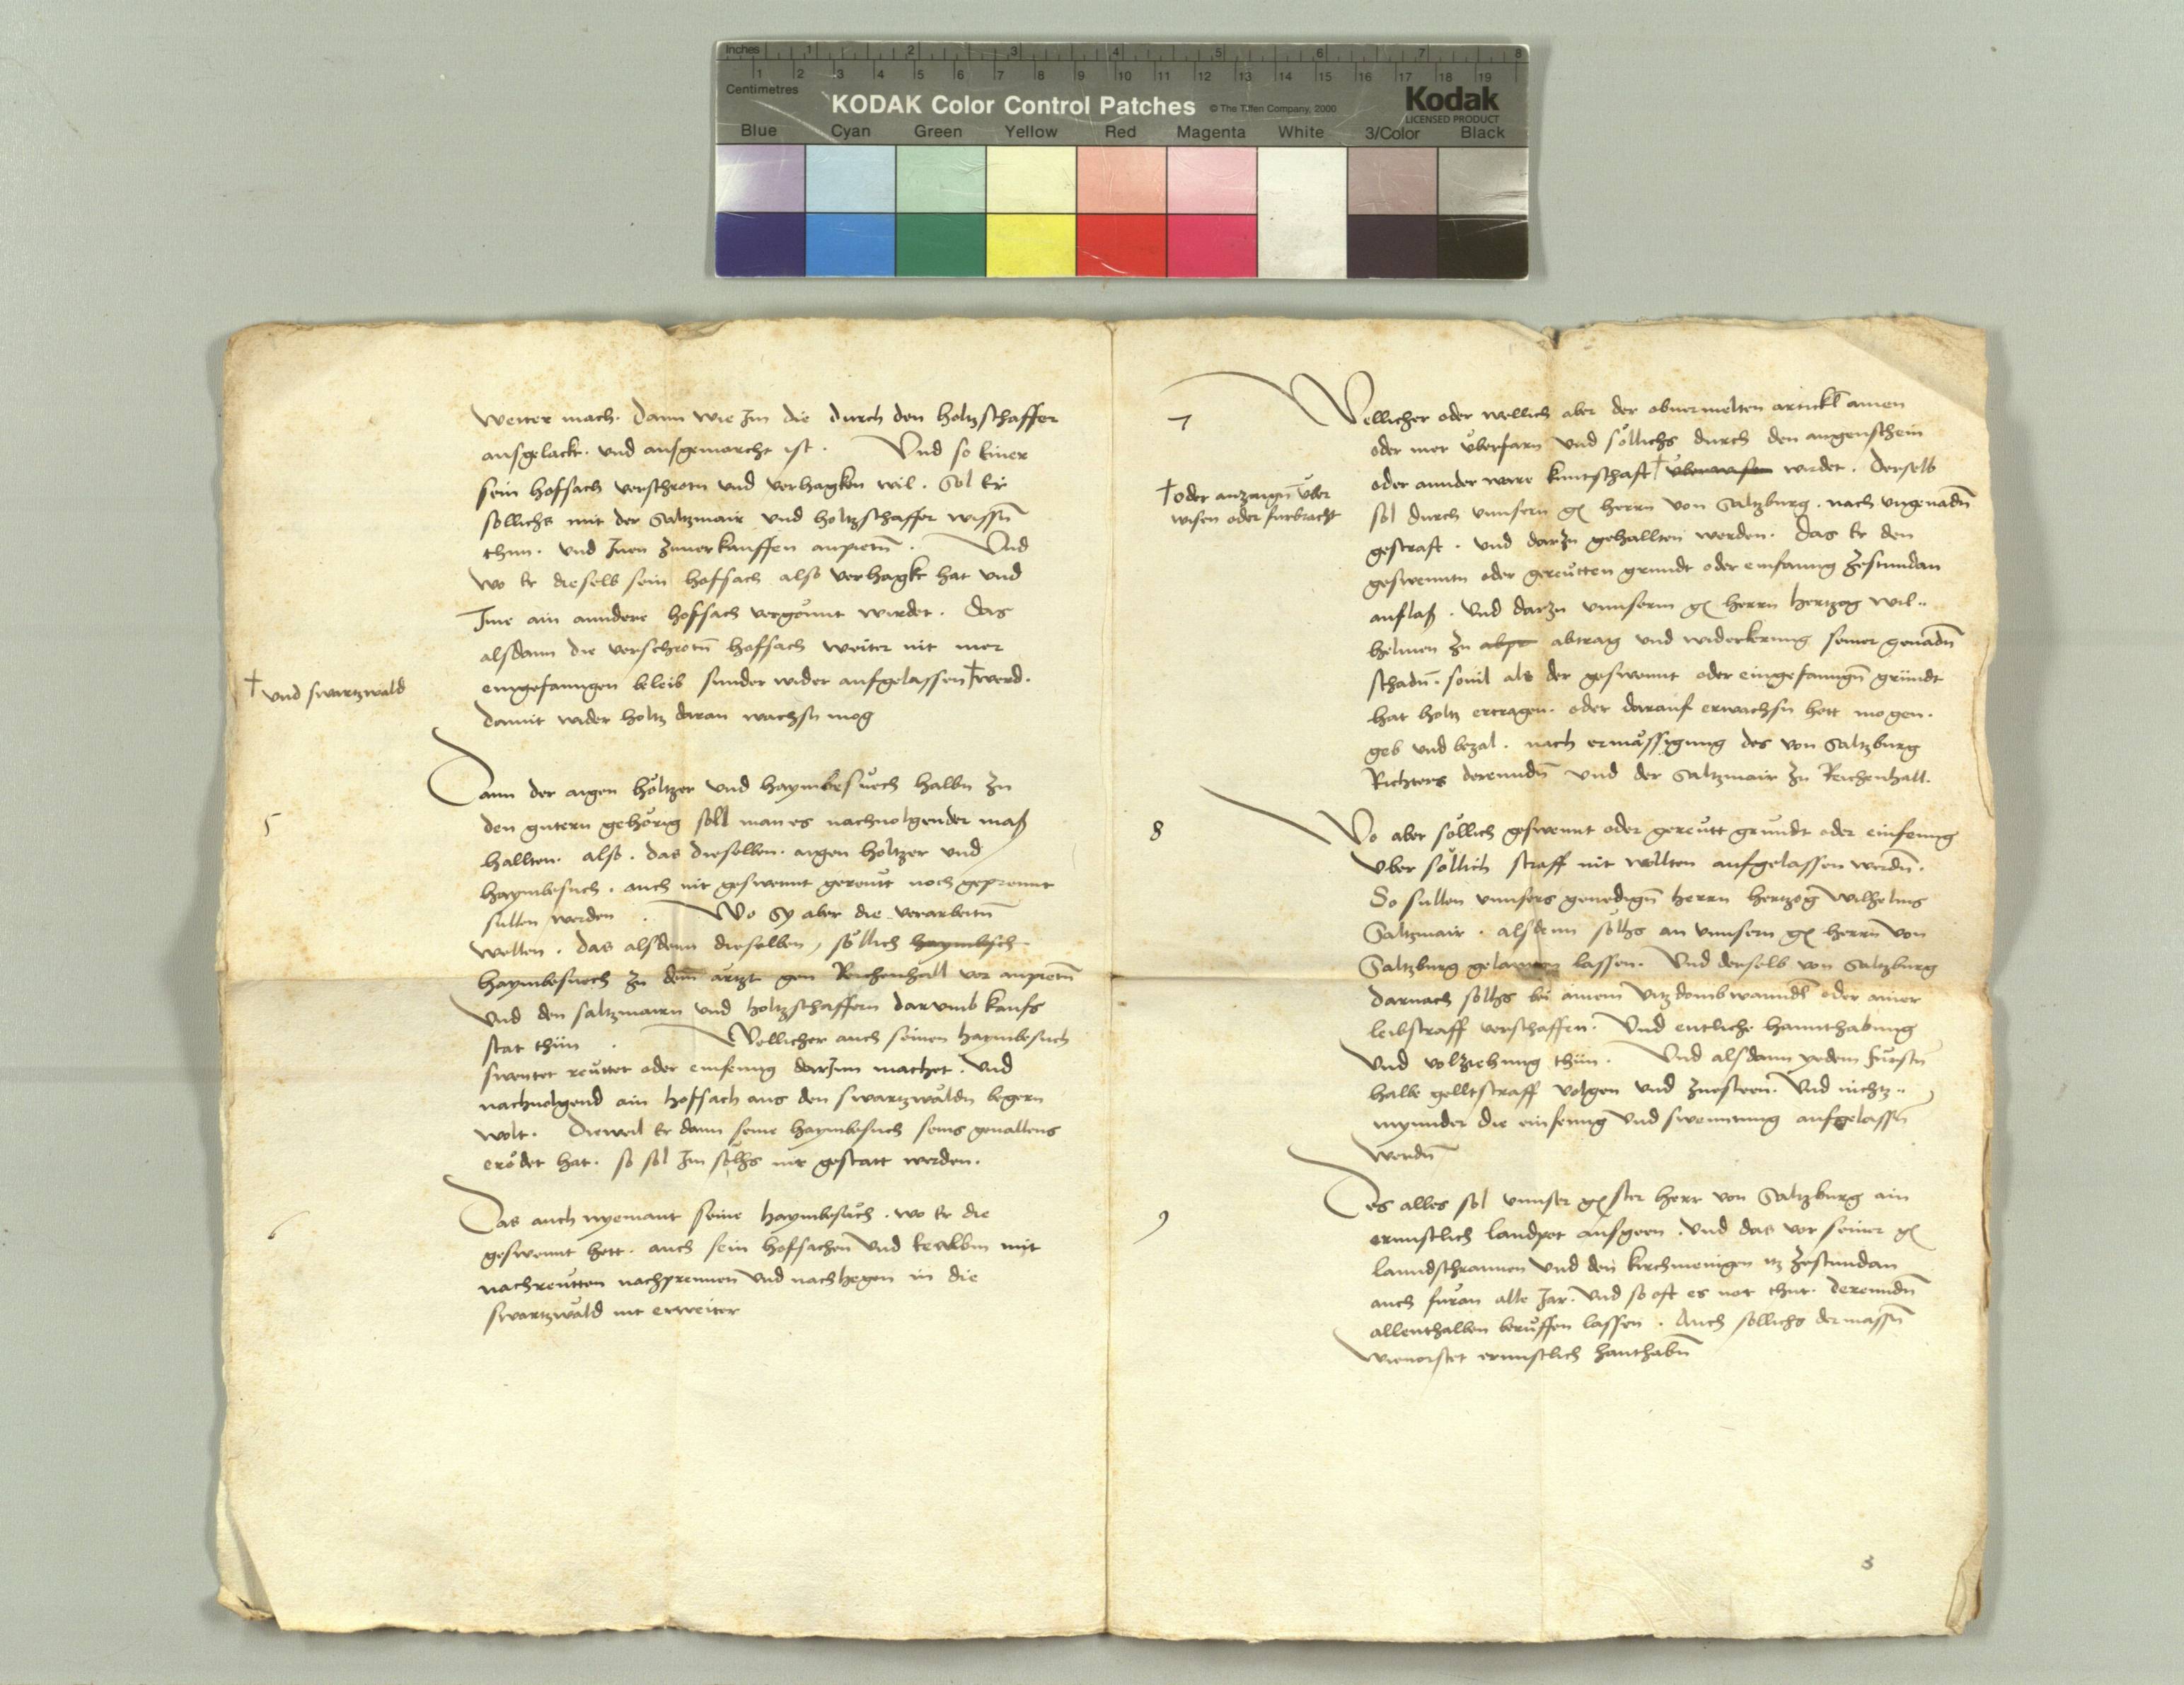 Inches 1 2 3 4 5 6 7 8
Centimetres 1 2 3 4 5 6 7 8 9 10 11 12 13 14 15 16 17 18 19
KODAK Color Control Patches © The Tiffen Company, 2000 Kodak
LICENSED PRODUCT
Blue Cyan Green Yellow Red Magenta White 3/Color Black
weiter mach. Dann wie Im die durch den holtzschaffer
ausgelackt. und ausgemarcht ist. Und so einer
sein hofsach verschrotn und verhagken wil. Sol Er
sollichs mit der Saltzmair und holtzschaffer wissn̄
thun. und Inen zuuerkauffen anpietn̄. Und
wo Er dieselb sein hofsach also verhagkt hat und
Ime ain anndere hofsach vergonnt wirdet. Das
alsdann die verschrotn̄ hofsach weiter nit mer
eingefanngen beleib sunder wider aufgelassen † werd.
† und swartzwald
damit wider holtz daran wachsn mog
5
Dann der aigen höltzer und haymbesuech halbn zu
den gutern gehörig soll man es nachuolgender maß
hallten. also. das dieselben. aigen höltzer und
haymbesuch. auch nit geswennt gereutt noch geprennt
sullen werden. Wo Sy aber die verarbeitn̄
wolten. das alsdann dieselben, söllich haymbsch
haymbesuech zu dem artzt gen Reichenhall vor anpietn̄
und den saltzmairn und holtzschaffern darumb kaufs
stat thün. Wellicher auch seinen haymbesuch
swentet reuttet oder einfenng darInn machet. Und
nachuolgend ain hofsach aus den swartzwäldn begern
wolt. Dieweil Er dann seine haymbesuch seins geuallens
erödet hat. so sol Im solhs nit gestatt werden.
6
Das auch nyemant seine haymbesuch. wo Er die
geswennt hett. auch sein hofsachen und mit
nachreutten nachprennen und nachhegen in die
swartzwäld nit erweiter
7
Wellicher oder wellich aber der obuermelten artickl ainen
oder mer überfarn und söllichs durch den augenschein
oder annder ware kuntschaft † überwisen wirdet. Derselb
† oder anzaign über
wisen oder furbracht
sol durch unnsern g herrn von Saltzburg. nach ungenadn̄
gestraft. und darzu gehallten werden. Das Er den
geswenntn oder gereutten grundt oder einfanng zestundan
auslaß. Und darzu unnserm g herrn hertzog wil..
helmen zu abpr abtrag und widerkerung seiner genadn̄
schadn̄. souil als der geswennt oder eingefanngn̄ gründt
hat holtz ertragen. oder darauf erwachsn hett mogen.
geb und bezal. nach ermässigung des von Saltzburg
Richters derenndn̄ und der Saltzmair zu Reichenhall.
8
Wo aber söllich geswennt oder gereutt grundt oder einfenng
über söllich straff nit wollten aufgelassen werdn̄.
So sullen unnsers genedign̄ herrn hertzog Wilhelms
Saltzmair. alsdenn solhs an unnsern g herrn von
Saltzburg gelanngen lassen. Und derselb von Saltzburg
darnach solhs bei ainem vitzdombwanndl oder ainer
leibstraff verschaffen. Und entliche hannthabung
und volziehung thün. Und alsdann yedem fürstn
halbe gelltstraff volgen und zuesteen. Und nichtz..
mynnder die einfenng und swenntung aufgelassn̄
werdn̄
9
Des alles sol unnser g ster herr von Saltzburg ain
ernnstlich landpot ausgeen. Und das vor seiner g
lanndschrannen und den kirchmenigen ytz zestundan
auch furan alle Jar. Und so oft es not thut. derenndn̄
allenthalben berüffen lassen. Auch sollichs dermassn̄
wieuorstet ernnstlich hanthabn̄
3